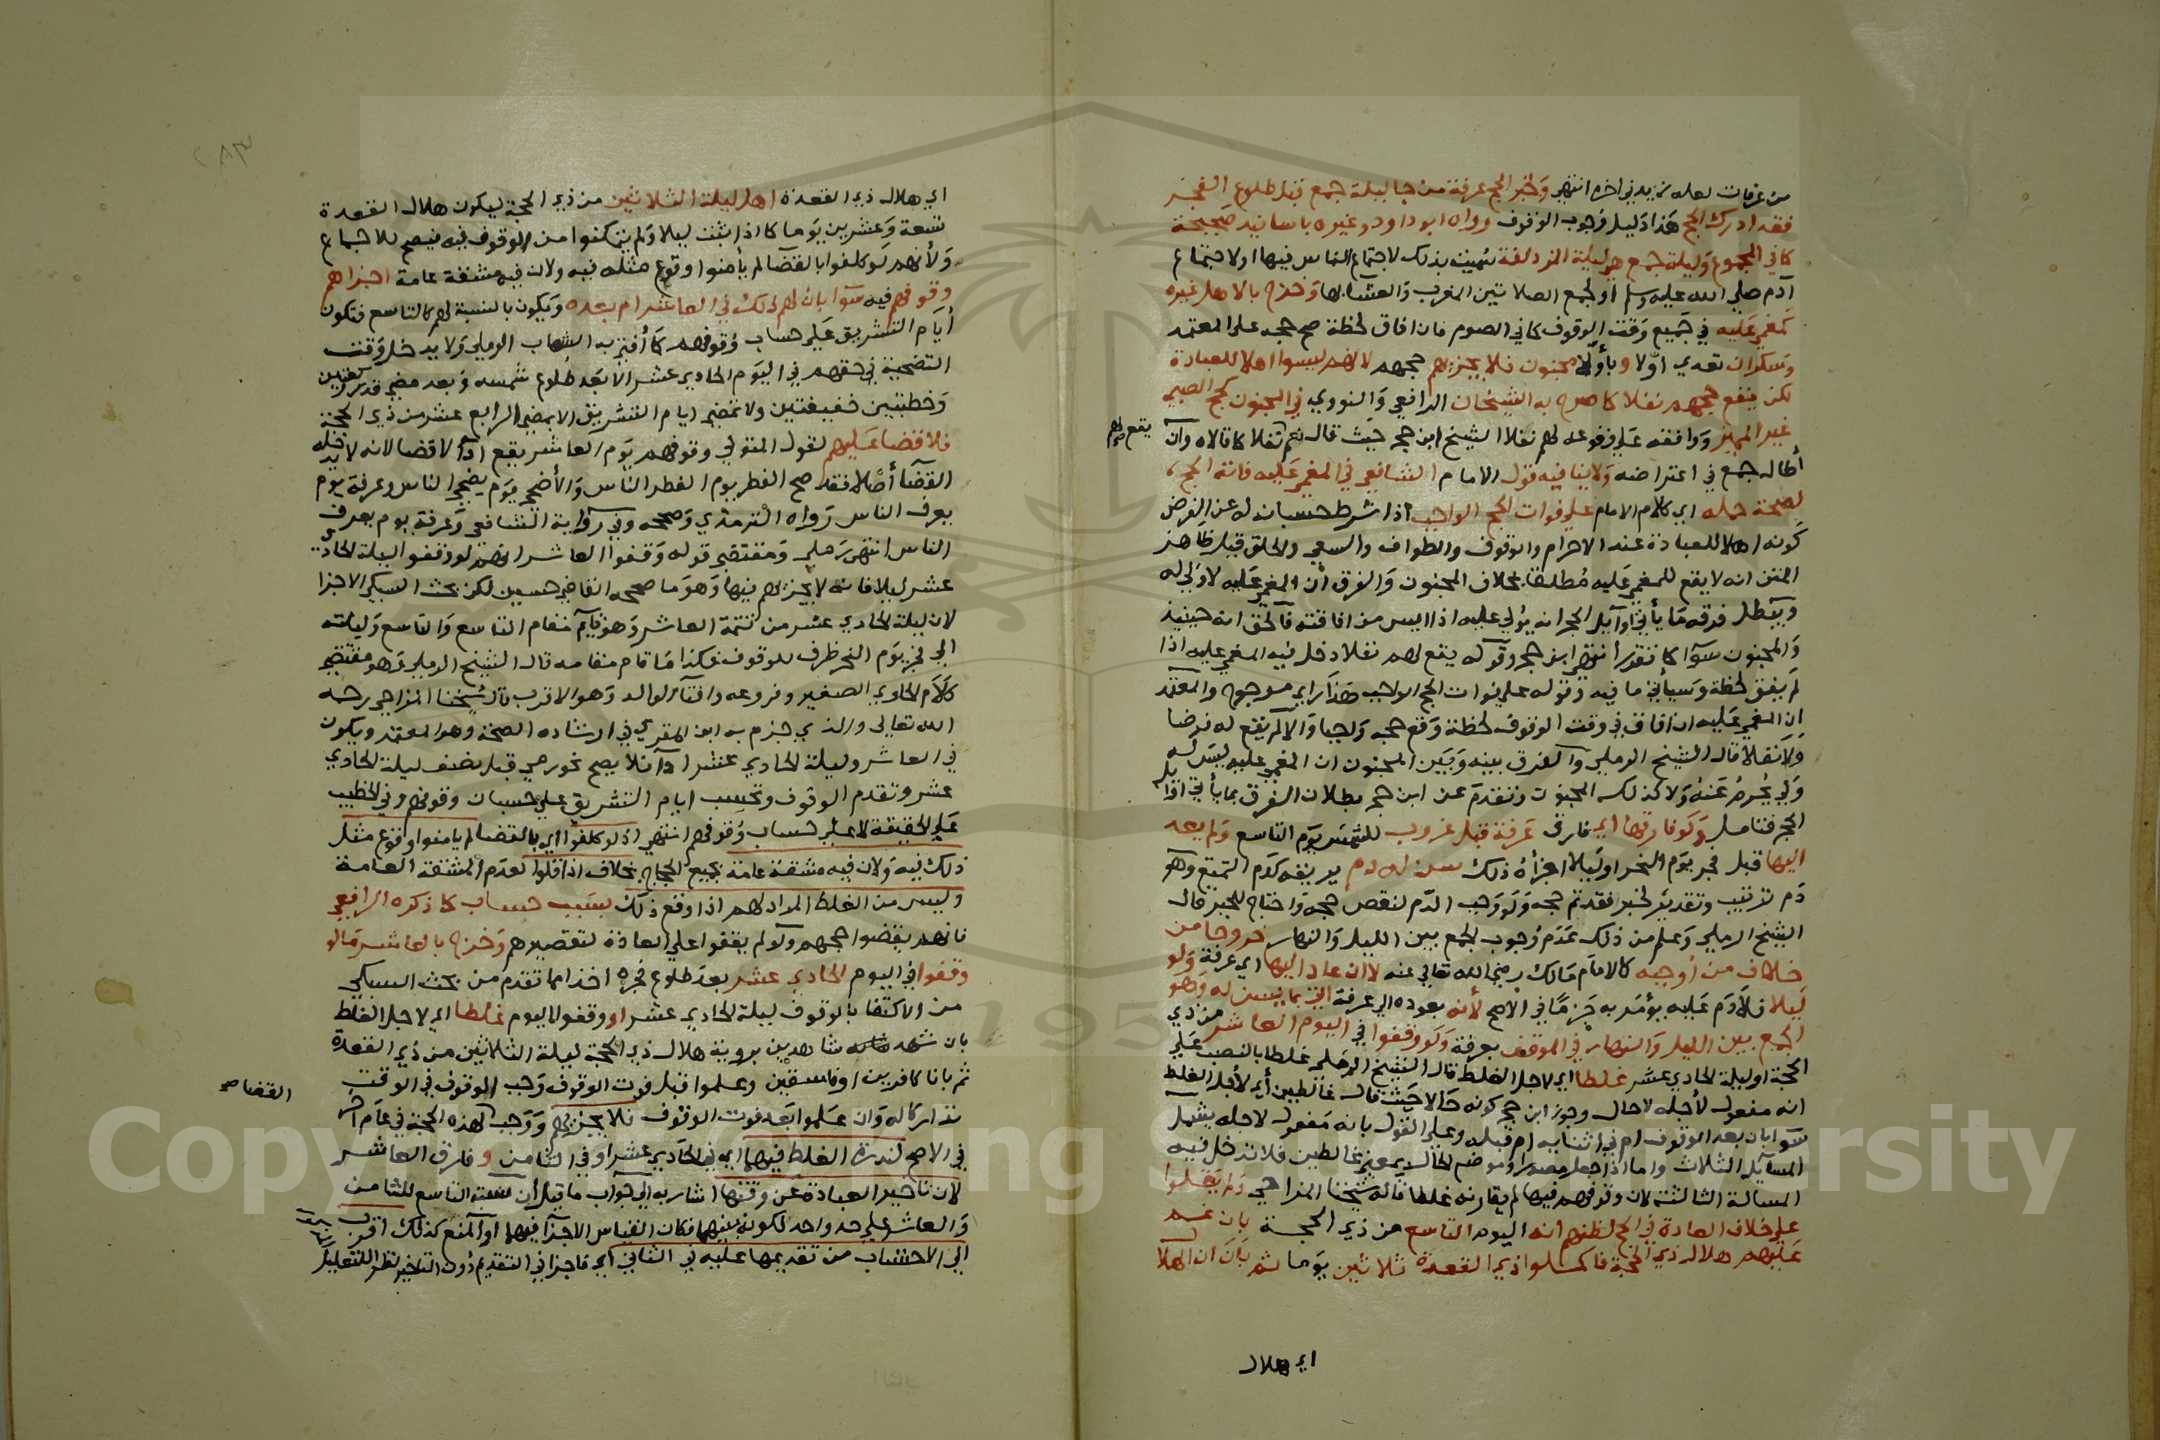 من عرفات لعله يزيد في اخره انتهي وخبر الحج عرفة من جا ليلة جمع قبل طلوع الفجر
فقد ادرك الحج هذا دليل وجوب الوقوف رواه ابو داود وغيره باسانيد صحيحة
كما في المجموع وليلة جمع هي ليلة المزدلفة سميت بذلك لاجتماع الناس فيها او لاجتماع
آدم صلي الله عليه وسلم او لجمع الصلاتين المغرب والعشا بها وخرج بالاهل غيره
كمغمي عليه في جميع وقت الوقوف كما في الصوم فان افاق لحظة صح حجه علي المعتمد
وسكران تعدي اولا وبأولي مجنون فلا يجزيهم حجهم لانهم ليسوا اهلا للعبادة
لكن يقع حجهم نفلا كما صرح به الشيخان الرافعي والنووي في المجنون كحج الصبي
غير المميز ووافقه علي وقوعه لهم نفلا الشيخ ابن حجر حيث قال نعم نفلا كما قالاه وان
يقع لهم صح
أطال جمع في اعتراضه ولا ينافيه قول الامام الشافعي في المغمي عليه فاته الحج
لصحة حمله اي كلام الامام علي فوات الحج الواجب اذ شرط حسبانه له عن الفرض
كونه اهلا للعبادة عند الاحرام والوقوف والطواف والسعي والحلق قيل ظاهر
المتن انه لا يقع للمغمي عليه مطلقا بخلاف المجنون والفرق أن المغمي عليه لا ولي له
ويبطل فرقه ما يأتي اوايل الحجر انه يولي عليه اذا ايس من افاقته فالحق انه حينئذ
والمجنون سوآ كما تقرر انتهي ابن حجر وقوله يقع لهم نفلا دخل فيه المغمي عليه اذا
لم يفق لحظة وسيأتي ما فيه وقوله علي فوات الحج الواجب هذا راي مرجوح والمعتمد
ان المغمي عليه ان افاق في وقت الوقوف لحظة وقع حجه واجبا والا لم يقع له فرضا
ولا نفلا قاله الشيخ الرملي والفرق بينه وبين المجنون ان المغمي عليه ليس له
ولي يحرم عنه ولا كذلك المجنون وتقدم عن ابن حجر بطلان الفرق بما يأتي اوايل
الحجر فتامل ولو فارقها اي فارق عرفة قبل غروب للشمس يوم التاسع ولم يعد
اليها قبل فجر يوم النحر او ليلا اجزأه ذلك سن له دم يريقه كدم التمتع وهو
دم ترتيب وتقدير لخبر فقد تم حجه ولو وجب الدم لنقص حجه واحتاج للجبر قال
الشيخ الرملي وعلم من ذلك عدم وجوب الجمع بين الليل والنهار خروجا من
خلاف من أوجبه كالامام مالك رضي الله تعالي عنه لا ان عاد اليها اي عرفة ولو
ليلا فلا دم عليه يؤمر به جزما في الاصح لأنه بعوده الي عرفة اتي بما يسن له وهو
الجمع بين الليل والنهار في الموقف بعرفة ولو وقفوا في اليوم العاشر من ذي
الحجة او ليلة الحادي عشر غلطا اي لاجل الغلط قال الشيخ الرملي غلطا بالنصب علي
انه مفعول لأجله لا حال وجوز ابن حجر كونه حالا حيث قال غالطين أي لأجل الغلط
سوا بان بعد الوقوف ام في اثنايه ام قبله وعلي القول بانه مفعول لاجله يشمل
المسآيل الثلاث واما اذا جعل مصدرا وموضع الحال بمعني غالطين فلا تدخل فيه
المسالة الثالثة لان وقوفهم فيها لم يقارنه غلطا قاله شيخنا المزاحي ولم يقلوا
علي خلاف العادة في الحج لظنهم انه اليوم التاسع من ذي الحجة بان غم
عليهم هلال ذي الحجة فاكملوا ذي القعدة ثلاثين يوما ثم بان ان الهلال
اي هلال
اي هلال ذي القعدة اهل ليلة الثلاثين من ذي الحجة ليكون هلال القعدة
تسعة وعشرين يوما كما اذا ثبت ليلا ولم يتمكنوا من الوقوف فيه فيصح للاجماع
ولأنهم لو كلفوا بالقضا لم يأمنوا وقوع مثله فيه ولان فيه مشقة عامة اجزاهم
وقوفهم فيه سوآ بان لهم ذلك في العاشر ام بعده ويكون بالنسبة لهم كالتاسع فتكون
أيام التشريق علي حساب وقوفهم كما أفتي به الشهاب الرملي ولا يدخل وقت
التضحية في حقهم في اليوم الحادي عشر الا بعد طلوع شمسه وبعد مضي قدر ركعتين
وخطبتين خفيفتين ولا تمضي ايام التشريق الا بمضي الرابع عشر من ذي الحجة
فلا قضا عليهم لقول المتولي وقوفهم يوم العاشر يقع ادآ لا قضا لانه لا يدخله
القضآ أصلا فقد صح الفطر يوم الفطر الناس والأضحي يوم يضحي الناس وعرفة يوم
يعرف الناس رواه الترمذي وصححه وفي رواية الشافعي وعرفة يوم يعرف
الناس انتهي رملي ومقتضي قوله وقفوا العاشر انهم لو وقفوا ليلة الحادي
عشر ليلا فانه لا يجزيهم فيها وهو ما صححه القاضي حسين لكن بحث السبكي الاجزا
لان ليلة الحادي عشر من تتمة العاشر وهو قايم مقام التاسع والتاسع وليلته
الي فجر يوم النحر ظرف للوقوف فكذا ما قام مقامه قال الشيخ الرملي وهو مقتضي
كلام الحاوي الصغير وفروعه وافتآ الوالد وهو الاقرب قال شيخنا المزاحي رحمه
الله تعالي والذي جزم به ابن المقري في ارشاده الصحة وهو المعتمد ويكون
في العاشر وليلة الحادي عشر ادآ فلا يصح نحو رمي قبل نصف ليلة الحادي
عشر وتقدم الوقوف وتحسب ايام التشريق علي حسبان وقوفهم وفي الخطيب
علي الحقيقة لا علي حساب وقوفهم انتهي اذ لو كلفوا اي بالقضا لم يامنوا وقوع مثل
ذلك فيه ولان فيه مشقة عامة بجميع الحجاج بخلاف اذا قلوا لعدم المشقة العامة
وليس من الغلط المراد لهم اذا وقع ذلك بسبب حساب كما ذكره الرافعي
فانهم يقضوا حجهم ولو لم يقفوا علي العادة لتقصيرهم وخرج بالعاشر ما لو
وقفوا في اليوم الحادي عشر بعد طلوع فجره اخذا مما تقدم من بحث السبكي
من الاكتفا بالوقوف ليلة الحادي عشر او وقفوا اليوم غلطا اي لاجل الغلط
بان شهد شاهدين برؤية هلال ذي الحجة ليلة الثلاثين من ذي القعدة
ثم بانا كافرين او فاسقين وعلموا قبل فوت الوقوف وجب الوقوف في الوقت
تداركا له وان علموا بعد فوت الوقوف فلا يجزيهم ووجب لهذه الحجة في عام آخر
القضا صح
في الاصح لندرة الغلط فيهما اي في الحادي عشر او في الثامن وفارق العاشر
لان تاخير العبادة عن وقتها اشار به الي جواب ما قيل أن نسبة التاسع للثامن
والعاشر علي حد واحد لكونه بينهما فكان القياس الاجزآ فيهما او المنع كذلك اقرب
الي الاحتساب من تقديمها عليه في الثاني اي فاجزا في التقديم دون التاخير نظر للتعليل